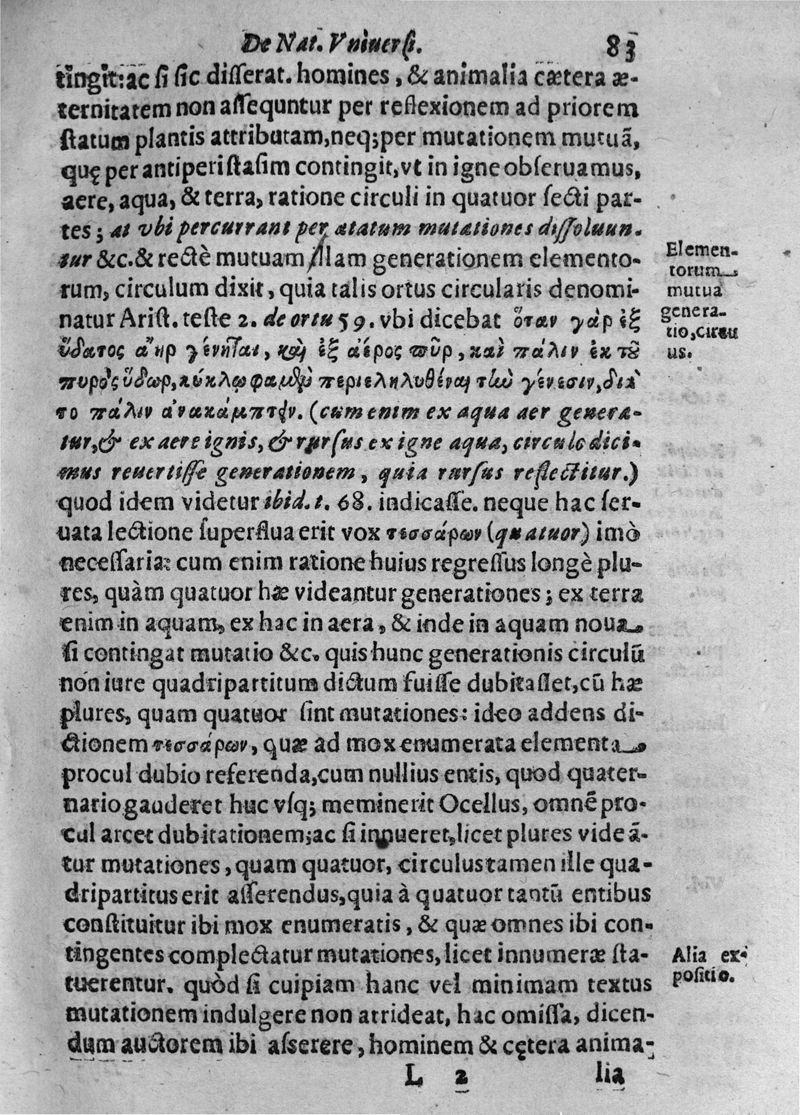 De Nat. Vniuerſi. 83
tingit: ac ſi ſic diſſerat. homines, & animalia cætera æ-
ternitatem non aſſequntur per reflexionem ad priorem
ſtatum plantis attributam, neq; per mutationem mutuã,
quę per antiperiſtaſim contingit, vt in igne obſeruamus,
aere, aqua, & terra, ratione circuli in quatuor ſecti par-
tes; at vbi percurrant per ætatum mutationes diſſoluun-
tur &c. & rectè mutuam illam generationem elemento-
rum, circulum dixit, quia talis ortus circularis denomi-
natur Ariſt. teſte 2. de ortu 59. vbi dicebat ὅταν γάρ ἐξ
ὕδατος ἀὴρ γένηται, καὶ ἐξ ἀέρος πῦρ, καὶ πάλιν ἐκ τοῦ
πυρὸς ὕδωρ, κύκλῳ φαμὲν περιεληλυθέναι τὼ γένεσιν, διὰ
το πάλιν ἀνακάμπτειν. (cum enim ex aqua aer genera-
tur, & ex aere ignis, & rurſus ex igne aqua, circulo dici-
mus reuertiſſe generationem, quia rurſus reflectitur.)
quod idem videtur ibid. t. 68. indicaſſe. neque hac ſer-
uata lectione ſuperflua erit vox τεσσάρων (quatuor) imò
neceſſaria: cum enim ratione huius regreſſus longè plu-
res, quàm quatuor hæ videantur generationes; ex terra
enim in aquam, ex hac in aera, & inde in aquam noua
ſi contingat mutatio &c. quis hunc generationis circulũ
non iure quadripartitum dictum fuiſſe dubitaſſet, cũ hæ
plures, quam quatuor ſint mutationes: ideo addens di-
ctionem τεσσάρων, quæ ad mox enumerata elementa,
procul dubio referenda, cum nullius entis, quod quater-
nario gauderet huc vſq; meminerit Ocellus, omnẽ pro-
cul arcet dubitationem; ac ſi innueret, licet plures videã-
tur mutationes, quam quatuor, circulus tamen ille qua-
dripartitus erit aſſerendus, quia à quatuor tantũ entibus
conſtituitur ibi mox enumeratis, & quæ omnes ibi con-
tingentes complectatur mutationes, licet innumeræ ſta-
tuerentur. quòd ſi cuipiam hanc vel minimam textus
mutationem indulgere non arrideat, hac omiſſa, dicen-
dum auctorem ibi aſserere, hominem & cętera anima-
L 2 lia
Elemen-
torum
mutua
genera-
tio, circu
us.
Alia ex-
poſitio.